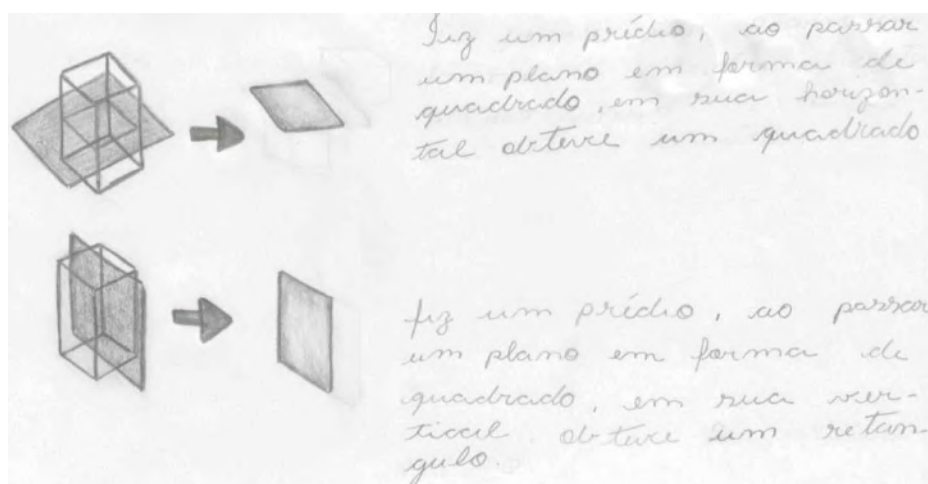 Fiz um prédio, ao passar
um plano em forma de
quadrado, em sua horizon-
tal obteve um quadrado
fiz um prédio, ao passar
um plano em forma de
quadrado, em sua ver-
tical. obteve um retan-
gulo.